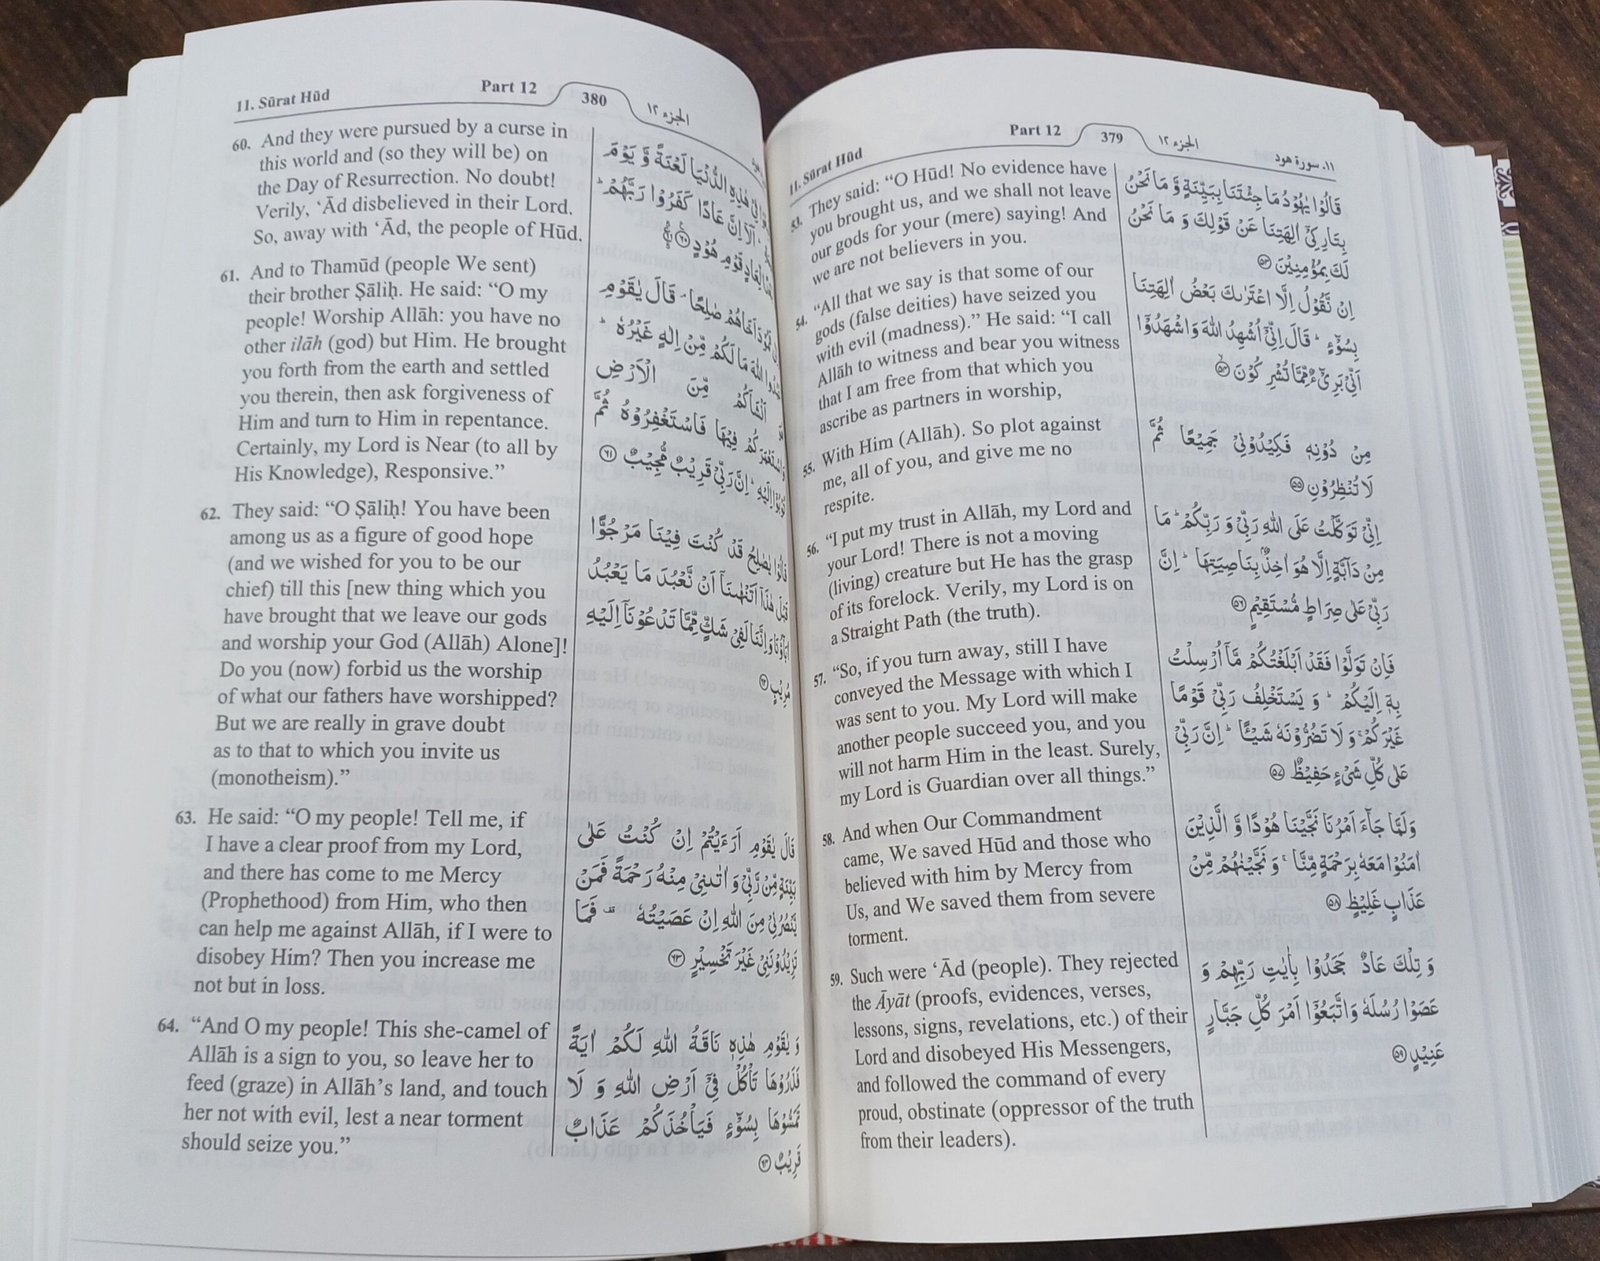 11. Sūrat Hūd Part 12 379 الجزء ١٢ ١١. سورة هود
53. They said: “O Hūd! No evidence have
you brought us, and we shall not leave
our gods for your (mere) saying! And
we are not believers in you.
54. “All that we say is that some of our
gods (false deities) have seized you
with evil (madness).” He said: “I call
Allāh to witness and bear you witness
that I am free from that which you
ascribe as partners in worship,
55. With Him (Allāh). So plot against
me, all of you, and give me no
respite.
56. “I put my trust in Allāh, my Lord and
your Lord! There is not a moving
(living) creature but He has the grasp
of its forelock. Verily, my Lord is on
a Straight Path (the truth).
57. “So, if you turn away, still I have
conveyed the Message with which I
was sent to you. My Lord will make
another people succeed you, and you
will not harm Him in the least. Surely,
my Lord is Guardian over all things.”
58. And when Our Commandment
came, We saved Hūd and those who
believed with him by Mercy from
Us, and We saved them from severe
torment.
59. Such were ‘Ād (people). They rejected
the Āyāt (proofs, evidences, verses,
lessons, signs, revelations, etc.) of their
Lord and disobeyed His Messengers,
and followed the command of every
proud, obstinate (oppressor of the truth
from their leaders).
قَالُوۡا يٰهُوۡدُ مَا جِئۡتَنَا بِبَيِّنَةٍ وَّ مَا نَحۡنُ
بِتَارِكِيۡۤ اٰلِهَتِنَا عَنۡ قَوۡلِكَ وَ مَا نَحۡنُ
لَكَ بِمُؤۡمِنِيۡنَ ۝٥٣
اِنۡ نَّقُوۡلُ اِلَّا اعۡتَرٰىكَ بَعۡضُ اٰلِهَتِنَا
بِسُوۡٓءٍ ؕ قَالَ اِنِّيۡۤ اُشۡهِدُ اللّٰهَ وَ اشۡهَدُوۡۤا
اَنِّيۡ بَرِيۡٓءٌ مِّمَّا تُشۡرِكُوۡنَ ۝٥٤
مِنۡ دُوۡنِهٖ فَكِيۡدُوۡنِيۡ جَمِيۡعًا ثُمَّ
لَا تُنۡظِرُوۡنِ ۝٥٥
اِنِّيۡ تَوَكَّلۡتُ عَلَى اللّٰهِ رَبِّيۡ وَ رَبِّكُمۡ ؕ مَا
مِنۡ دَآبَّةٍ اِلَّا هُوَ اٰخِذٌۢ بِنَاصِيَتِهَا ؕ اِنَّ
رَبِّيۡ عَلٰى صِرَاطٍ مُّسۡتَقِيۡمٍ ۝٥٦
فَاِنۡ تَوَلَّوۡا فَقَدۡ اَبۡلَغۡتُكُمۡ مَّاۤ اُرۡسِلۡتُ
بِهٖۤ اِلَيۡكُمۡ ؕ وَ يَسۡتَخۡلِفُ رَبِّيۡ قَوۡمًا
غَيۡرَكُمۡ ۚ وَ لَا تَضُرُّوۡنَهٗ شَيۡـًٔا ؕ اِنَّ رَبِّيۡ
عَلٰى كُلِّ شَيۡءٍ حَفِيۡظٌ ۝٥٧
وَ لَمَّا جَآءَ اَمۡرُنَا نَجَّيۡنَا هُوۡدًا وَّ الَّذِيۡنَ
اٰمَنُوۡا مَعَهٗ بِرَحۡمَةٍ مِّنَّا ۚ وَ نَجَّيۡنٰهُمۡ مِّنۡ
عَذَابٍ غَلِيۡظٍ ۝٥٨
وَ تِلۡكَ عَادٌ جَحَدُوۡا بِاٰيٰتِ رَبِّهِمۡ وَ
عَصَوۡا رُسُلَهٗ وَ اتَّبَعُوۡۤا اَمۡرَ كُلِّ جَبَّارٍ
عَنِيۡدٍ ۝٥٩
11. Sūrat Hūd Part 12 380 الجزء ١٢
60. And they were pursued by a curse in
this world and (so they will be) on
the Day of Resurrection. No doubt!
Verily, ‘Ād disbelieved in their Lord.
So, away with ‘Ād, the people of Hūd.
61. And to Thamūd (people We sent)
their brother Ṣāliḥ. He said: “O my
people! Worship Allāh: you have no
other ilāh (god) but Him. He brought
you forth from the earth and settled
you therein, then ask forgiveness of
Him and turn to Him in repentance.
Certainly, my Lord is Near (to all by
His Knowledge), Responsive.”
62. They said: “O Ṣāliḥ! You have been
among us as a figure of good hope
(and we wished for you to be our
chief) till this [new thing which you
have brought that we leave our gods
and worship your God (Allāh) Alone]!
Do you (now) forbid us the worship
of what our fathers have worshipped?
But we are really in grave doubt
as to that to which you invite us
(monotheism).”
63. He said: “O my people! Tell me, if
I have a clear proof from my Lord,
and there has come to me Mercy
(Prophethood) from Him, who then
can help me against Allāh, if I were to
disobey Him? Then you increase me
not but in loss.
64. “And O my people! This she-camel of
Allāh is a sign to you, so leave her to
feed (graze) in Allāh’s land, and touch
her not with evil, lest a near torment
should seize you.”
هٰذِهِ الدُّنۡيَا لَعۡنَةً وَّ يَوۡمَ
اَلَاۤ اِنَّ عَادًا كَفَرُوۡا رَبَّهُمۡ ؕ
لِّعَادٍ قَوۡمِ هُوۡدٍ ۝٦٠
اَخَاهُمۡ صٰلِحًا ۘ قَالَ يٰقَوۡمِ
اللّٰهَ مَا لَكُمۡ مِّنۡ اِلٰهٍ غَيۡرُهٗ ؕ
اَنۡشَاَكُمۡ مِّنَ الۡاَرۡضِ
فِيۡهَا فَاسۡتَغۡفِرُوۡهُ ثُمَّ
تُوۡبُوۡۤا اِلَيۡهِ ؕ اِنَّ رَبِّيۡ قَرِيۡبٌ مُّجِيۡبٌ ۝٦١
قَالُوۡا يٰصٰلِحُ قَدۡ كُنۡتَ فِيۡنَا مَرۡجُوًّا
قَبۡلَ هٰذَاۤ اَتَنۡهٰىنَاۤ اَنۡ نَّعۡبُدَ مَا يَعۡبُدُ
اٰبَآؤُنَا وَ اِنَّنَا لَفِيۡ شَكٍّ مِّمَّا تَدۡعُوۡنَاۤ اِلَيۡهِ
مُرِيۡبٍ ۝٦٢
قَالَ يٰقَوۡمِ اَرَءَيۡتُمۡ اِنۡ كُنۡتُ عَلٰى
بَيِّنَةٍ مِّنۡ رَّبِّيۡ وَ اٰتٰىنِيۡ مِنۡهُ رَحۡمَةً فَمَنۡ
يَّنۡصُرُنِيۡ مِنَ اللّٰهِ اِنۡ عَصَيۡتُهٗ ۟ فَمَا
تَزِيۡدُوۡنَنِيۡ غَيۡرَ تَخۡسِيۡرٍ ۝٦٣
وَ يٰقَوۡمِ هٰذِهٖ نَاقَةُ اللّٰهِ لَكُمۡ اٰيَةً
فَذَرُوۡهَا تَاۡكُلۡ فِيۡۤ اَرۡضِ اللّٰهِ وَ لَا
تَمَسُّوۡهَا بِسُوۡٓءٍ فَيَاۡخُذَكُمۡ عَذَابٌ
قَرِيۡبٌ ۝٦٤